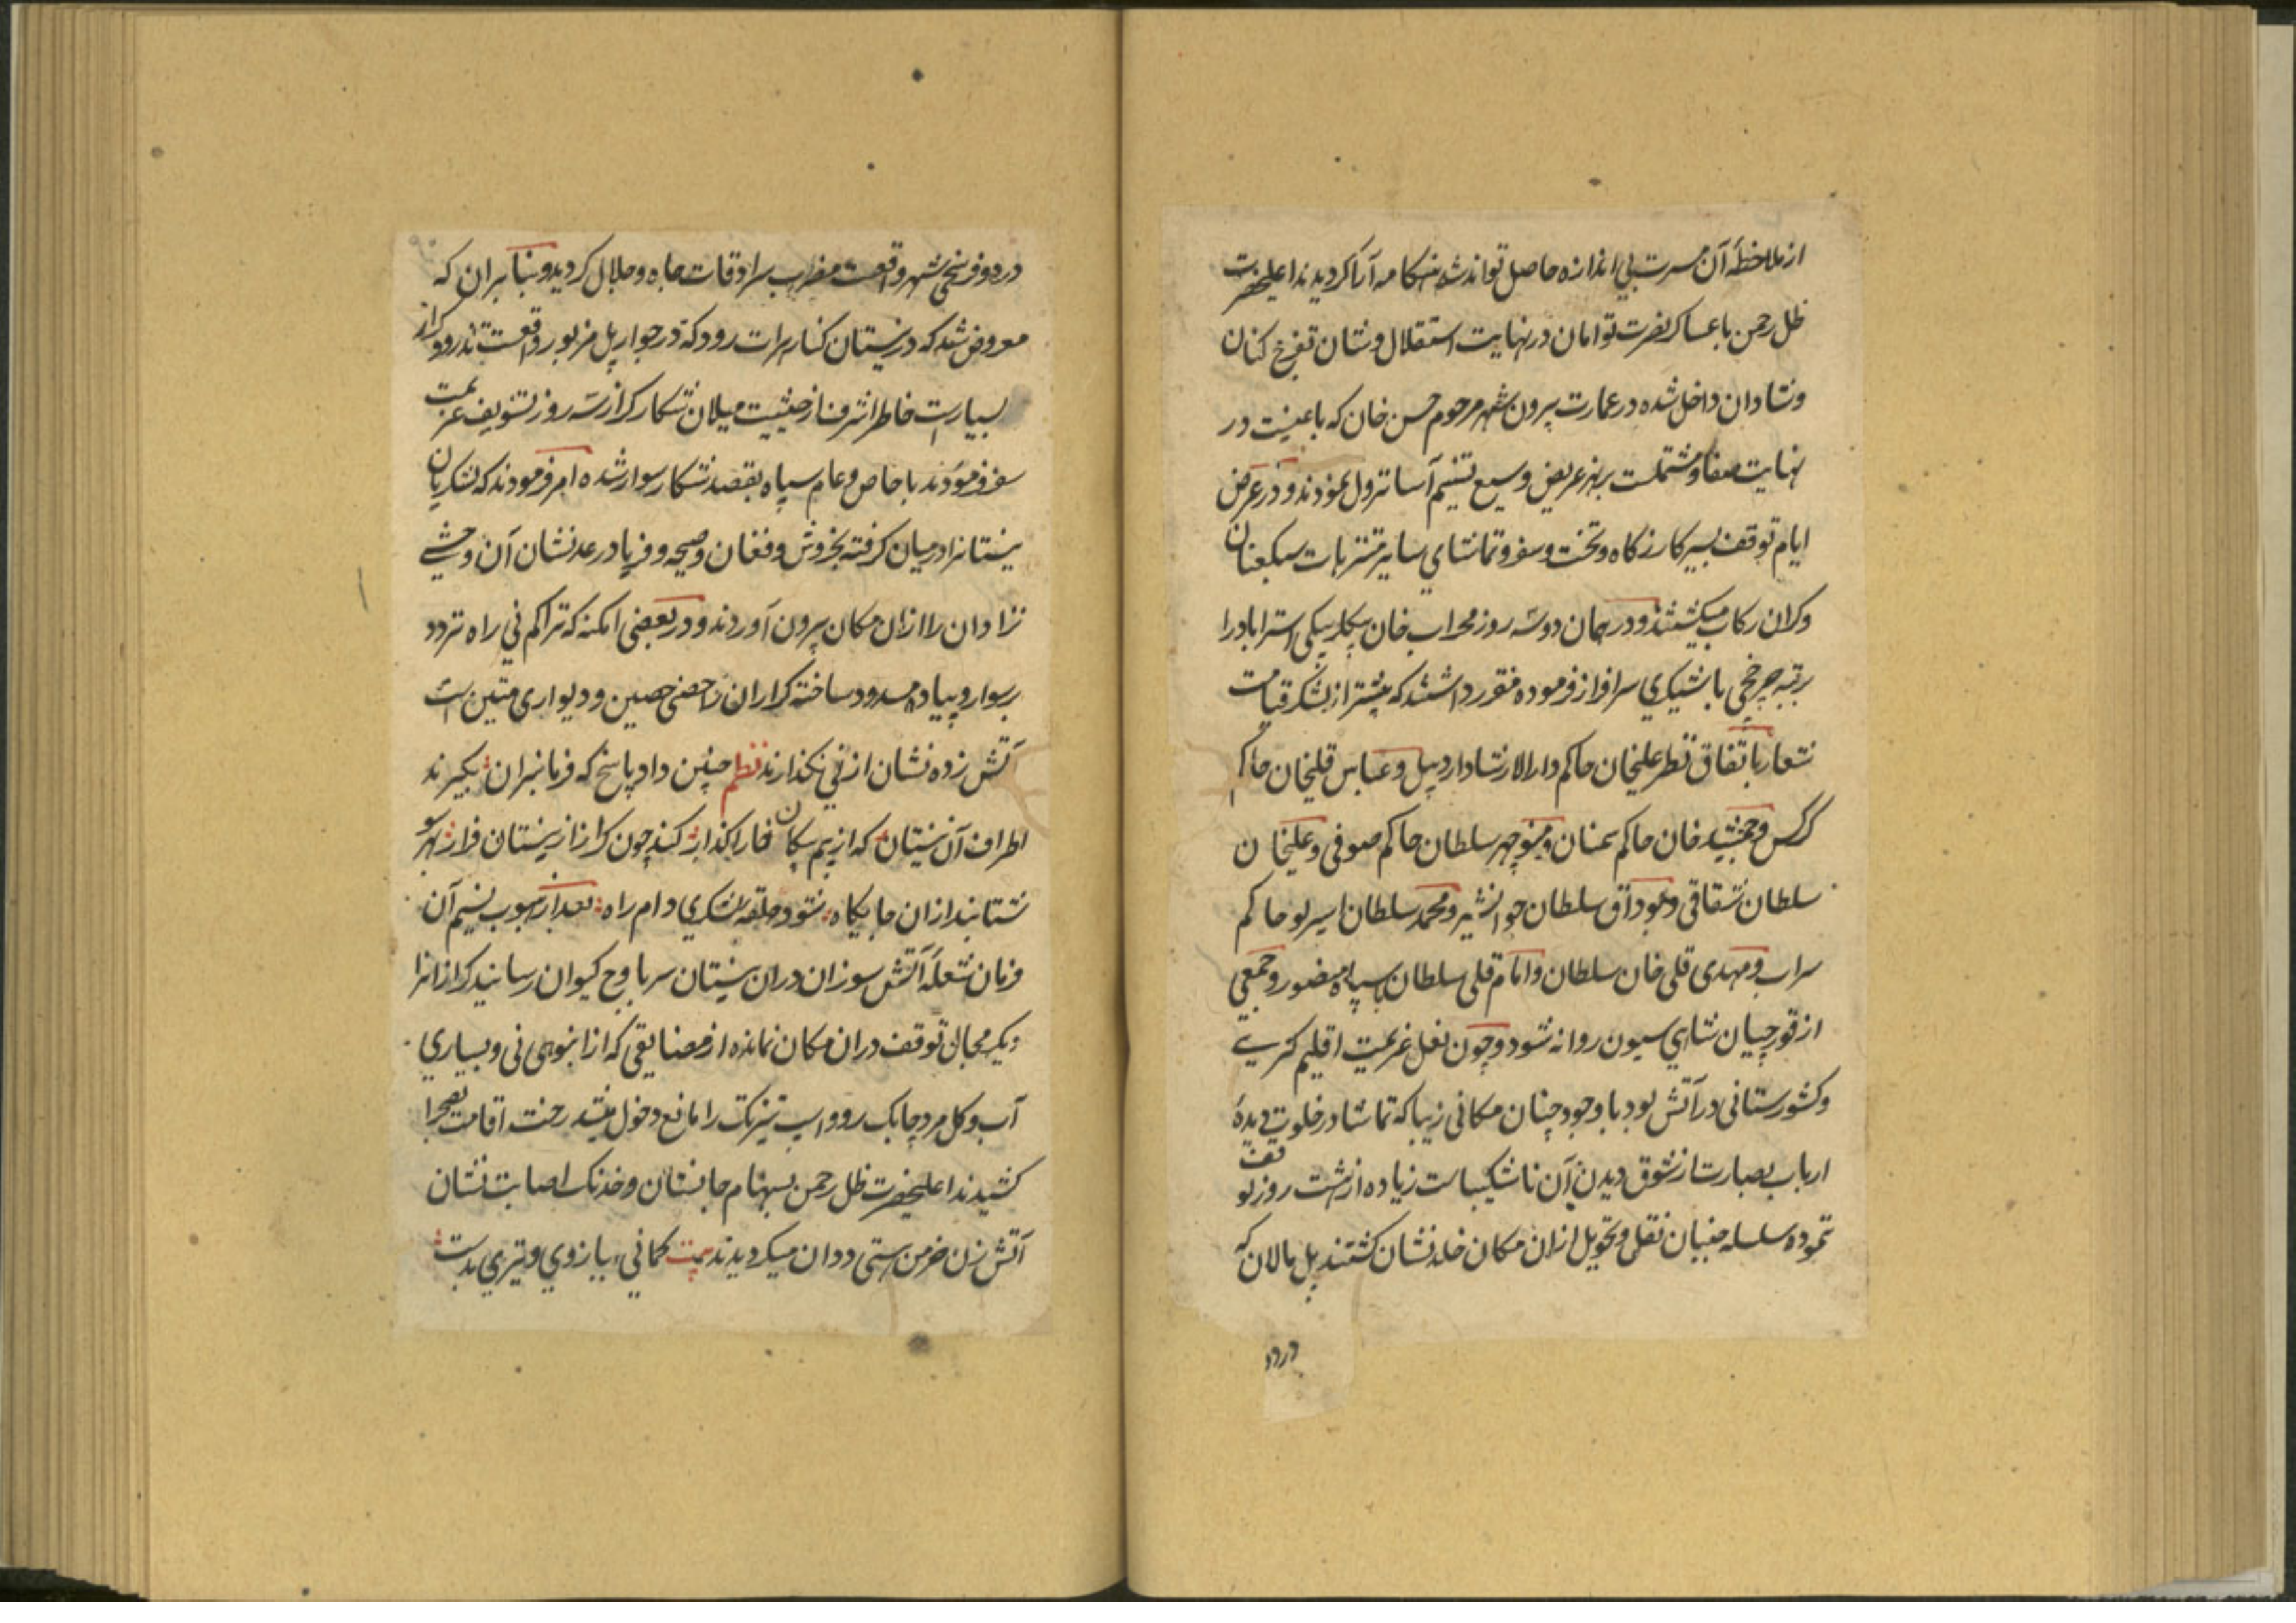 از ملاحظهٔ آن مسرت بی اندازه حاصل تواند شد هنکامه آرا کردیدند اعلیحضرت
ظل رحمن با عساکر نصرت توامان در نهایت استقلال و شان تفرج کنان
و شادان داخل شده در عمارت بیرون شهر مرحوم حسن خان که باغیست در
نهایت صفا و مشتملست بر نهر عریض وسیع تسنیم آسا نزول نمودند و در عرض
ایام توقف بسیر کازرکاه و تخت و سفر و تماشای سایر متنزهات سبکعنان
و کران رکاب میکشتند و در همان دو سه روز محراب خان بیکلربیکی استراباد را
برتبه چرخچی باشیکری سرافراز فرموده مقرر داشتند که پیشتر از لشکر قیامت
شعار باتفاق نظر علیخان حاکم دارالارشاد اردبیل و عباس قلیخان حاکم
کرکس و جمشید خان حاکم سمنان و منوچهر سلطان حاکم صوفی و علیخان
سلطان شقاقی و عوداق سلطان جوانشیر و محمد سلطان اسیرلو حاکم
سراب و مهدی قلی خان سلطان و امام قلی سلطان با سپاه منصور و جمعی
از قورچیان شاهی سیون روانه شود و چون نعل عزیمت اقلیم کیری
و کشورستانی در آتش بود با وجود چنان مکانی زیبا که تماشا در خلوت دیدهٔ
ارباب بصارت از شوق دیدن آن ناشکیباست زیاده از هشت روز توقف
نموده سلسله جنبان نقل و تحویل ازان مکان خلد نشان کشتند پل مالان که
در دو
در دو فرسخی شهر واقعست مضرب سرادقات جاه و جلال کردید و بنا بران که
معروض شد که در نیستان کنار هرات رود که در جوار پل مزبور واقعست تذرو و کراز
بسیارست خاطر اشرف از حیثیت میلان شکار کراز سه روز تسویف عزیمت
سفر فرمودند با خاص و عام سپاه بقصد شکار سوار شده امر فرمودند که لشکریان
نیستانرا در میان کرفته بخروش و فغان و صیحه و فریاد رعد نشان آن وحشی
نژادان را ازان مکان بیرون آوردند و در بعضی امکنه که تراکم نی راه تردد
بر سوار و پیاده مسدود ساخته کرازان را حصنی حصین و دیواری متین است
آتش زده نشان از نی نکذارند نظم چنین داد پاسخ که فرمانبران بکیرند
اطراف آن نیستان که از بیم پیکان خارا کذار کند چون کراز از نیستان فرار بهر سو
شتابند ازان جایکاه شود حلقه لشکری دام راه بعد از هبوب نسیم آن
فرمان شعلهٔ آتش سوزان دران نیستان سر باوج کیوان رسانید کرازانرا
دیکر مجال توقف دران مکان نمانده از مضایقی که از انبوهی نی و بسیاری
آب و کل مرد چابک رو و اسب تیزتک را مانع دخول میشد رخت اقامت بصحرا
کشیدند اعلیحضرت ظل رحمن بسهام جانستان و خدنک اصابت نشان
آتش زن خرمن هستی ددان میکردیدند بیت کمانی ببازوی و تیری بدست